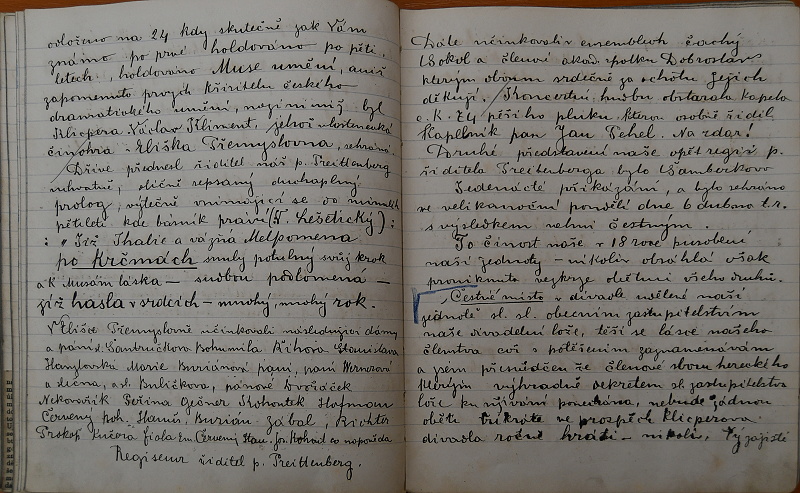 odloženo na 24 kdy skutečně jak Vám
známo po prvé holdováno po pěti
letech, holdováno Muse umění, aniž
zapomenuto prvých křisitelů českého
dramatického umění, nejinými byl
Klicpera Václav Kliment, jehož vlastenecká
činohra Eliška Přemyslovna, sehrána.
Dříve přednesl řiditel náš p. Treittenberg
úchvatně, sličně sepsaný duchaplný
prolog, výtečně vnímající se do minulé
pětileté kdy básník praví (V. Lešetický) :
: " Již Thalie a vážná Melpomena
po krčmách smuly potulný svůj krok
a k Musám láska – sudbou podlomená –
již hasla v srdcích – mnohý, mnohý rok.
V Elišce Přemyslovně účinkovali následující dámy
a pánové Šantrůčkova Bohumila, Říhova Stanislava
Marie Buriánová paní, paní Wernerová
a slečna, sl. Brličkova, pánové Dvořáček
Nekovařík Peřina Gečner Kohoutek Hofmann
Červený Hanuš, Burian, Zábal, Richter
Prokop Kučera Fiala Em. Červený Stan. Jos. Kohout co nápověda
Regiseur řiditel p. Treittenberg.
Dále účinkovali v ensemblech čacký
Sokol a členové akad. spolku Dobroslav
kterým oběma srdečně za ochotu jejich
děkuji. Koncertní hudbu obstarala kapela
c. k. 74 pěšího pluku, kterou osobně řídil
Kapelník pan Jan Pehel. Na zdar!
Druhé představení naše opět regií p.
řiditele Treitenberga bylo Šamberkovo
Jedenácté přikázání, a bylo sehráno
ve velikonoční pondělí dne 6 dubna t.r.
s výsledkem velmi čestným.
To činnost naše v 18 roce působení
naší jednoty – nikoliv obsáhlá však
proniknuta veskrze obětmi všeho druhu.
„Čestné místo v divadle udělené naší
jednotě sl. sl. obecním zastupitelstvím
naše divadelní lože, těší se lásce našeho
členstva což s potěšením zaznamenávám
a jsem přesvědčen že členové sboru hereckého
kterým výhradně dekretem sl. zastupitelstva
lóže ku užívání ponechána, nebude žádnou
obětí třikráte ve prospěch Klicperova
divadla ročně hráti – nikoli, Vy zajisté